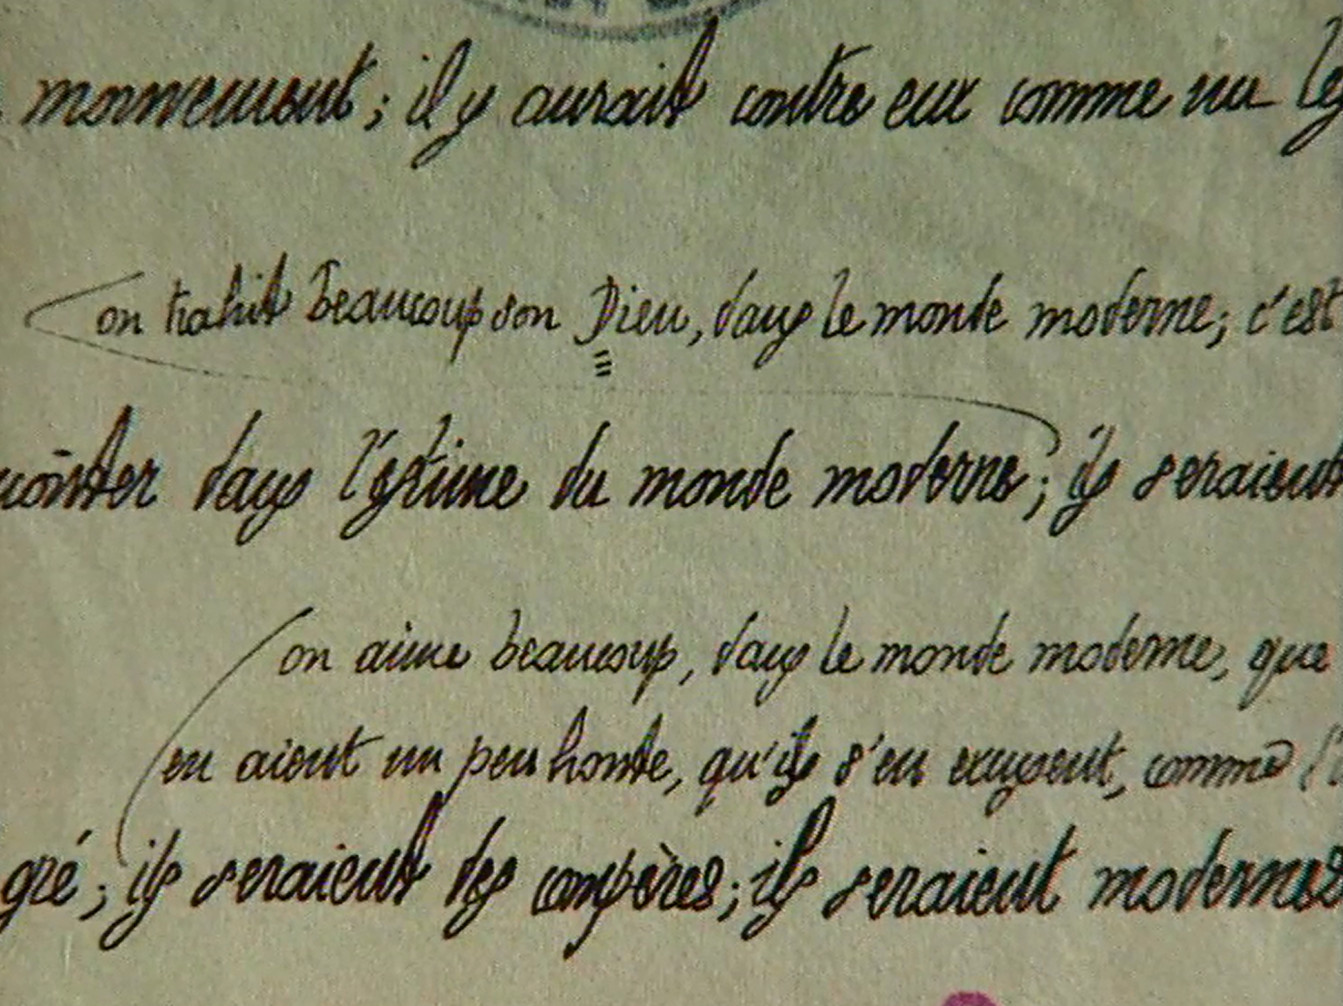 il y aurait contre eux comme un
on trahit beaucoup son Dieu, dans le monde moderne; c'est
dans l'estime du monde moderne; ils seraient
on aime beaucoup, dans le monde moderne, que
en aient un peu honte, qu'ils s'en excusent, comme
gré; ils seraient des compères; ils seraient modernes